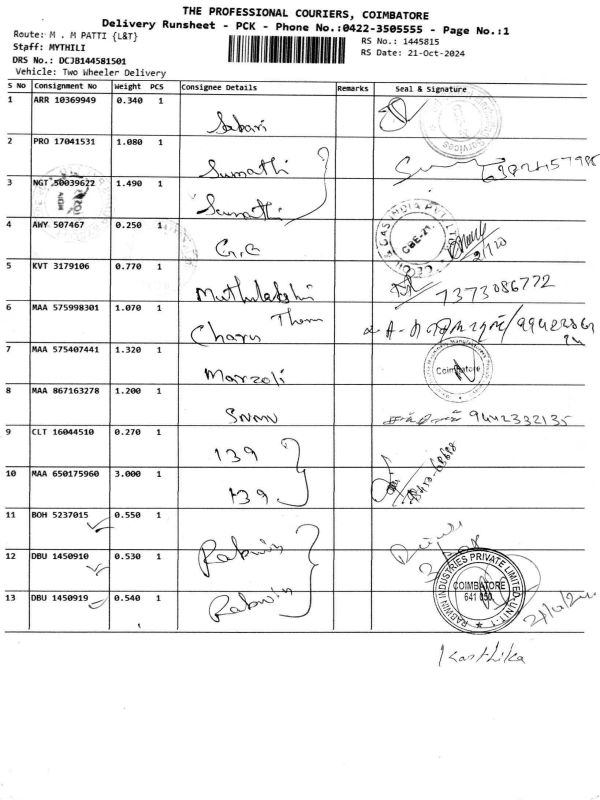 THE PROFESSIONAL COURIERS, COIMBATORE
Delivery Runsheet - PCK - Phone No.:0422-3505555 - Page No.:1
Route: M . M PATTI {L&T}
RS No.: 1445815
Staff: MYTHILI
RS Date: 21-Oct-2024
DRS No.: DCJB144581501
Vehicle: Two Wheeler Delivery
S No Consignment No Weight PCS Consignee Details Remarks Seal & Signature
1 ARR 10369949 0.340 1 Sabari
2 PRO 17041531 1.080 1 Sumathi
3 NGT 50039622 1.490 1 Sumathi
4 AWY 507467 0.250 1 G.G CBE-21
5 KVT 3179106 0.770 1 Muthulakshi 7373086772
6 MAA 575998301 1.070 1 Charu Them
7 MAA 575407441 1.320 1 Marzoli Coimbatore
8 MAA 867163278 1.200 1 SNMN 9442332135
9 CLT 16044510 0.270 1 139
10 MAA 650175960 3.000 1 139
11 BOH 5237015 0.550 1
12 DBU 1450910 0.530 1 Rabwin
13 DBU 1450919 0.540 1 Rabwin
RABWIN INDUSTRIES PRIVATE LIMITED-UNIT-1
COIMBATORE
641 050
Karthika